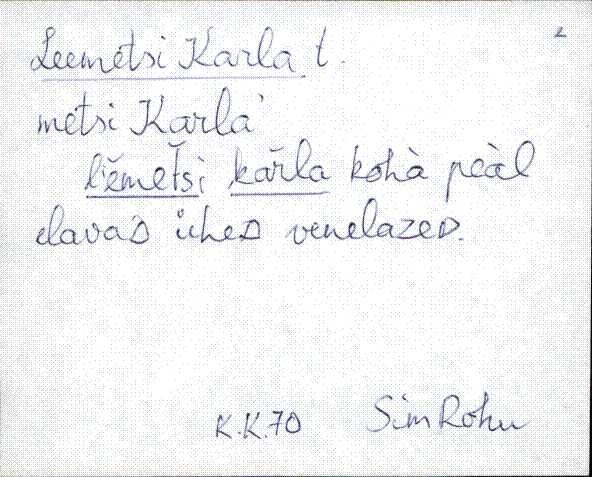 2
Leemetsi Karla t.
metsi Karla'
l'ĕmet̆si kăr̆la kohà peàl
elavaD üheD venelazeD.
K.K.70 Sim Rohu